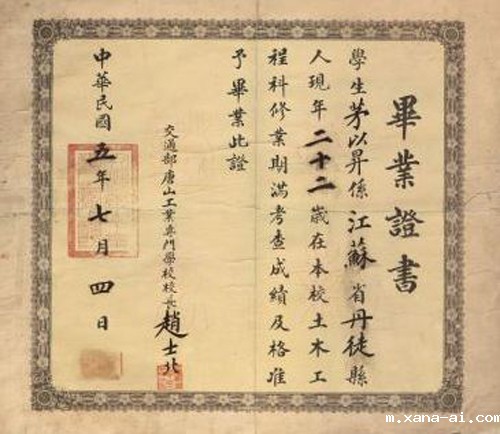 畢業證書
學生茅以昇係江蘇省丹徒縣
人現年二十二歲在本校土木工
程科修業期滿考查成績及格准
予畢業此證
交通部唐山工業專門學校校長趙士北
中華民國五年七月四日
m.xana-ai.com